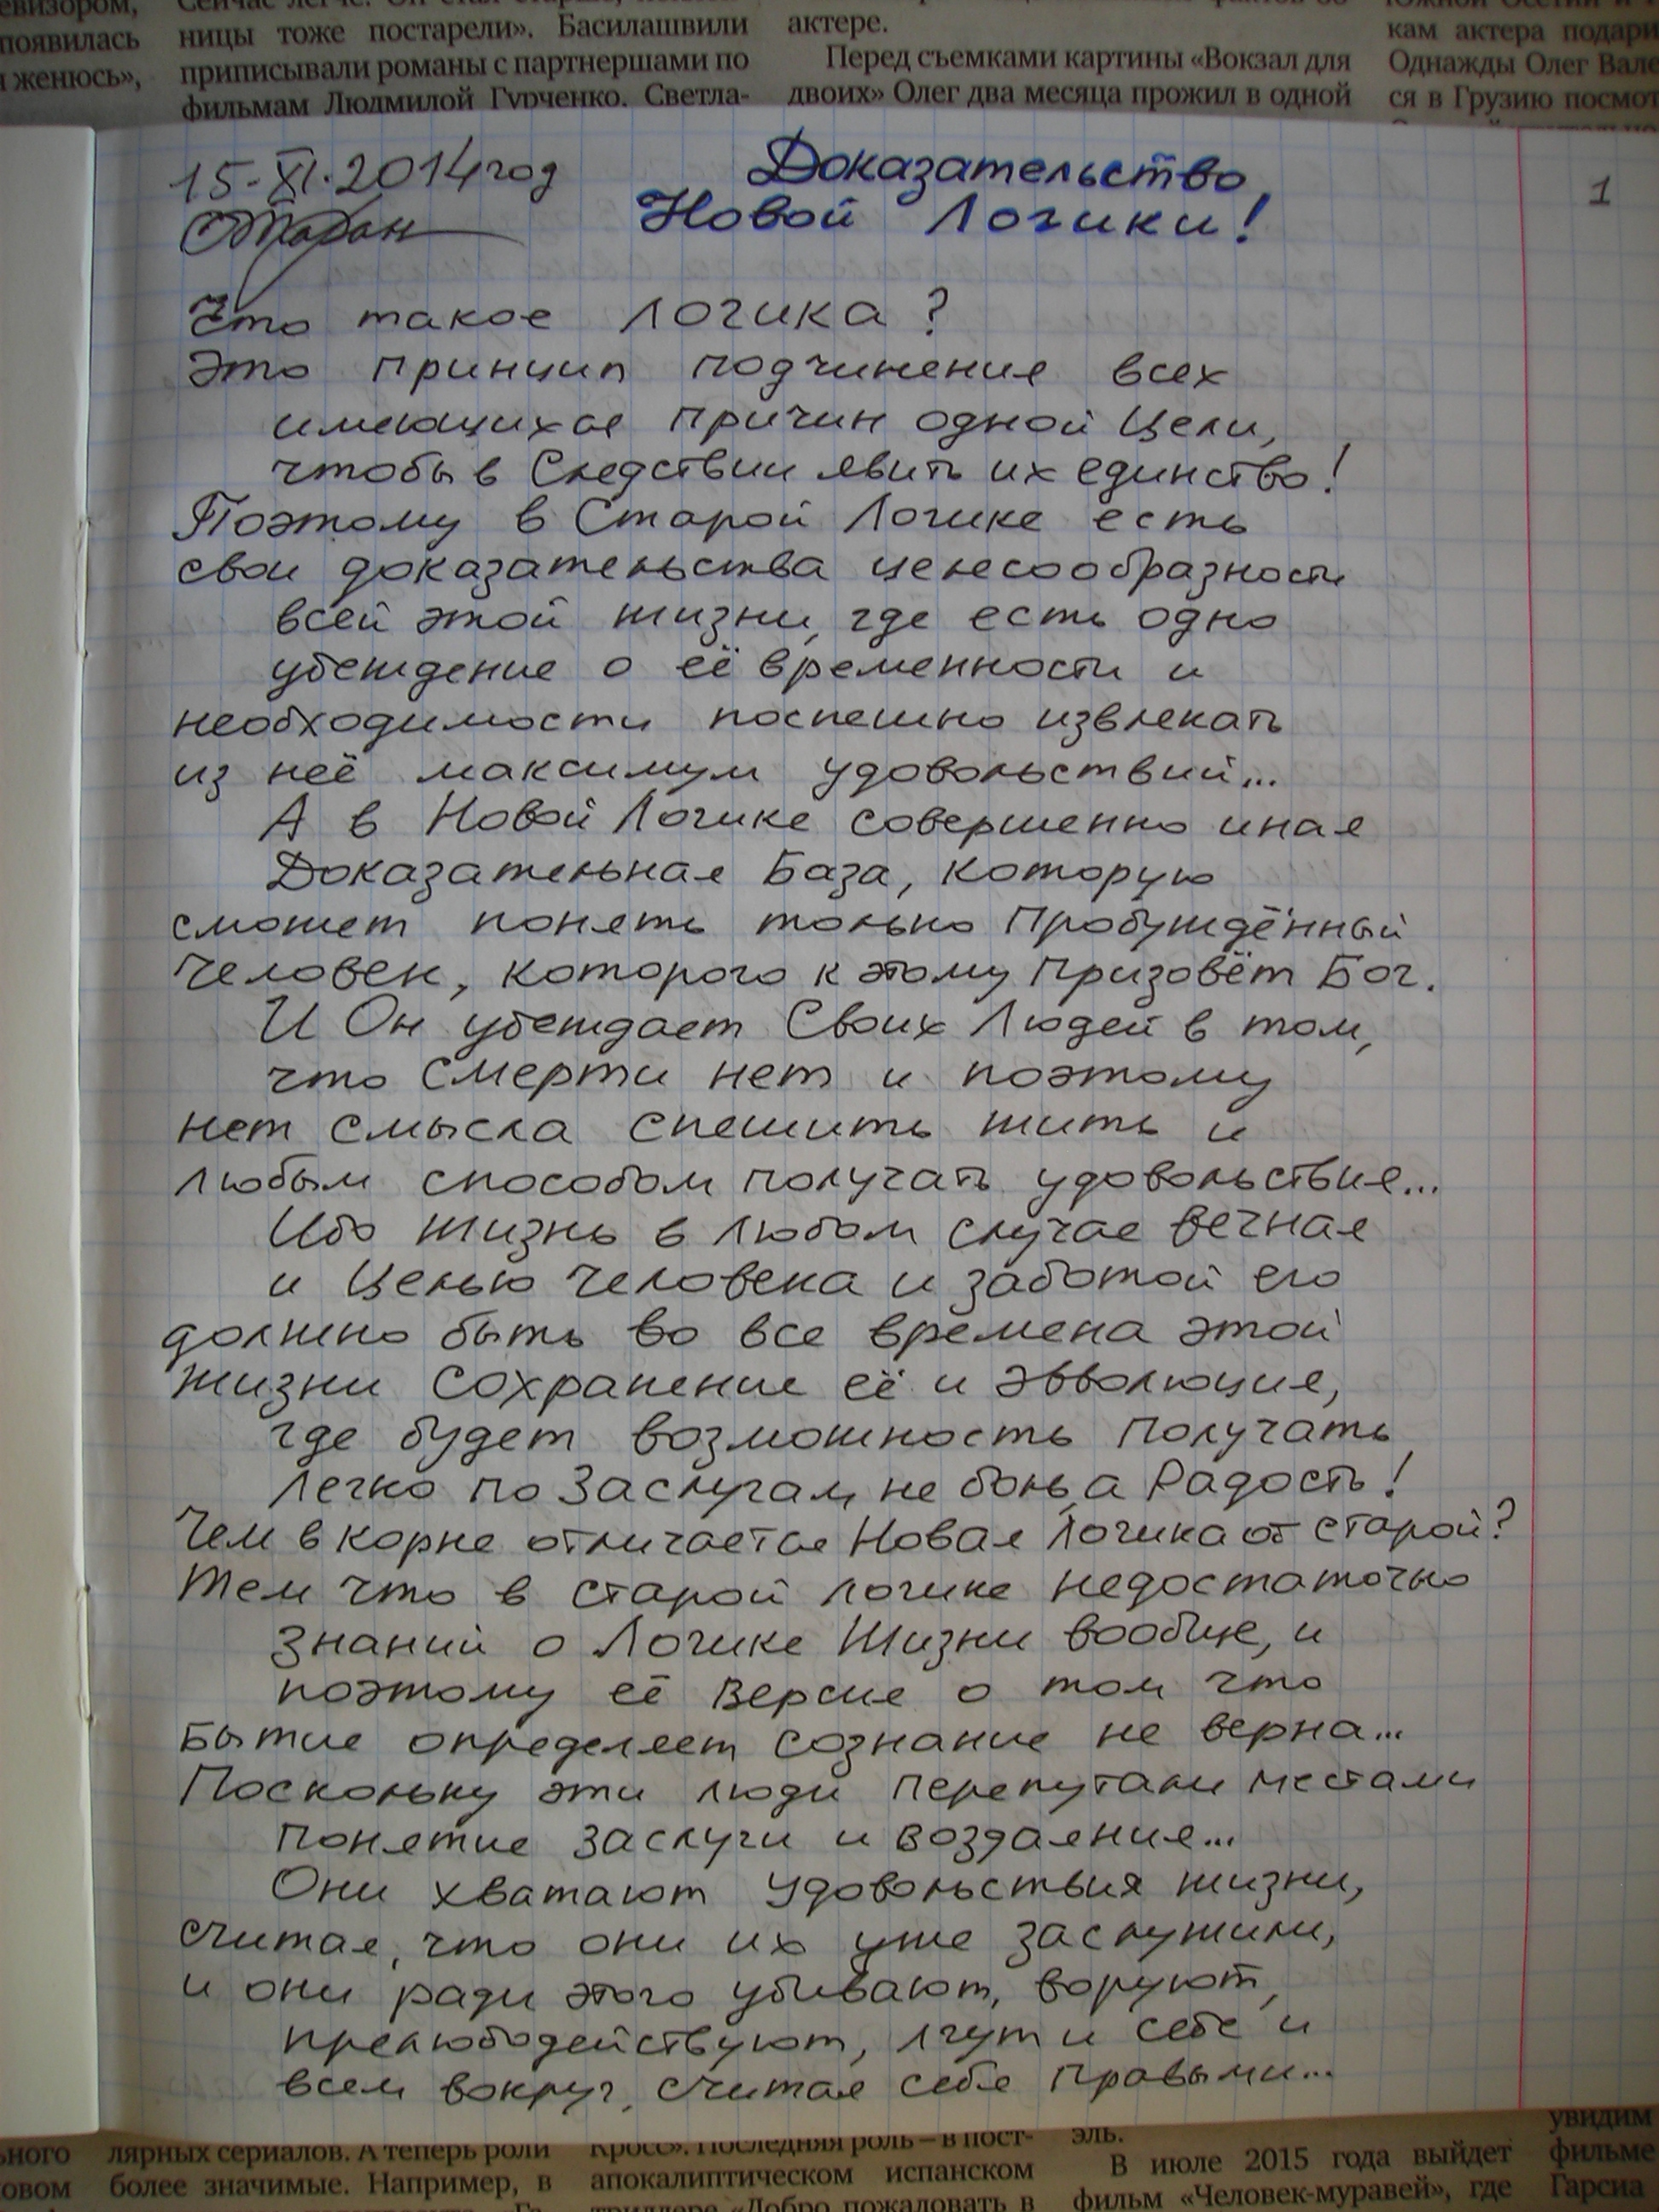 евизором,
появилась
женюсь»,
ницы тоже постарели». Басилашвили
приписывали романы с партнершами по
фильмам Людмилой Гурченко, Светла-
актере.
Перед съемками картины «Вокзал для
двоих» Олег два месяца прожил в одной
кам актера подари
Однажды Олег Вале
ся в Грузию посмот
15-XI.2014 год
Доказательство
Новой Логики!
1
Что такое логика?
Это принцип подчинения всех
имеющихся причин одной Цели,
чтобы в Следствии явить их единство!
Поэтому в Старой Логике есть
свои доказательства целесообразности
всей этой жизни, где есть одно
убеждение о её временности и
необходимости поспешно извлекать
из неё максимум удовольствий...
А в Новой Логике совершенно иная
Доказательная База, которую
сможет понять только Пробуждённый
Человек, которого к этому Призовёт Бог.
И Он убеждает Своих Людей в том,
что смерти нет и поэтому
нет смысла спешить жить и
любым способом получать удовольствие...
Ибо жизнь в любом случае вечная
и Целью Человека и заботой его
должно быть во все времена этой
Жизни Сохранение её и Эвволюция,
где будет возможность Получать
легко по Заслугам, не боль, а Радость!
Чем в корне отличается Новая Логика от старой?
Тем что в старой логике недостаточно
знаний о Логике Жизни вообще, и
поэтому её версия о том что
Бытие определяет сознание не верна...
Поскольку эти люди Перепутали местами
понятие заслуги и воздаяния...
Они хватают удовольствия жизни,
считая, что они их уже заслужили,
и они ради этого убивают, воруют,
прелюбодействуют, лгут и себе и
всем вокруг, считая себя Правыми...
ьного
овом
лярных сериалов. А теперь роли
более значимые. Например, в
Кросс». Последняя роль – в пост-
апокалиптическом испанском
триллере «Добро пожаловать в
эль.
В июле 2015 года выйдет
фильм «Человек-муравей», где
увидим
фильме
Гарсиа